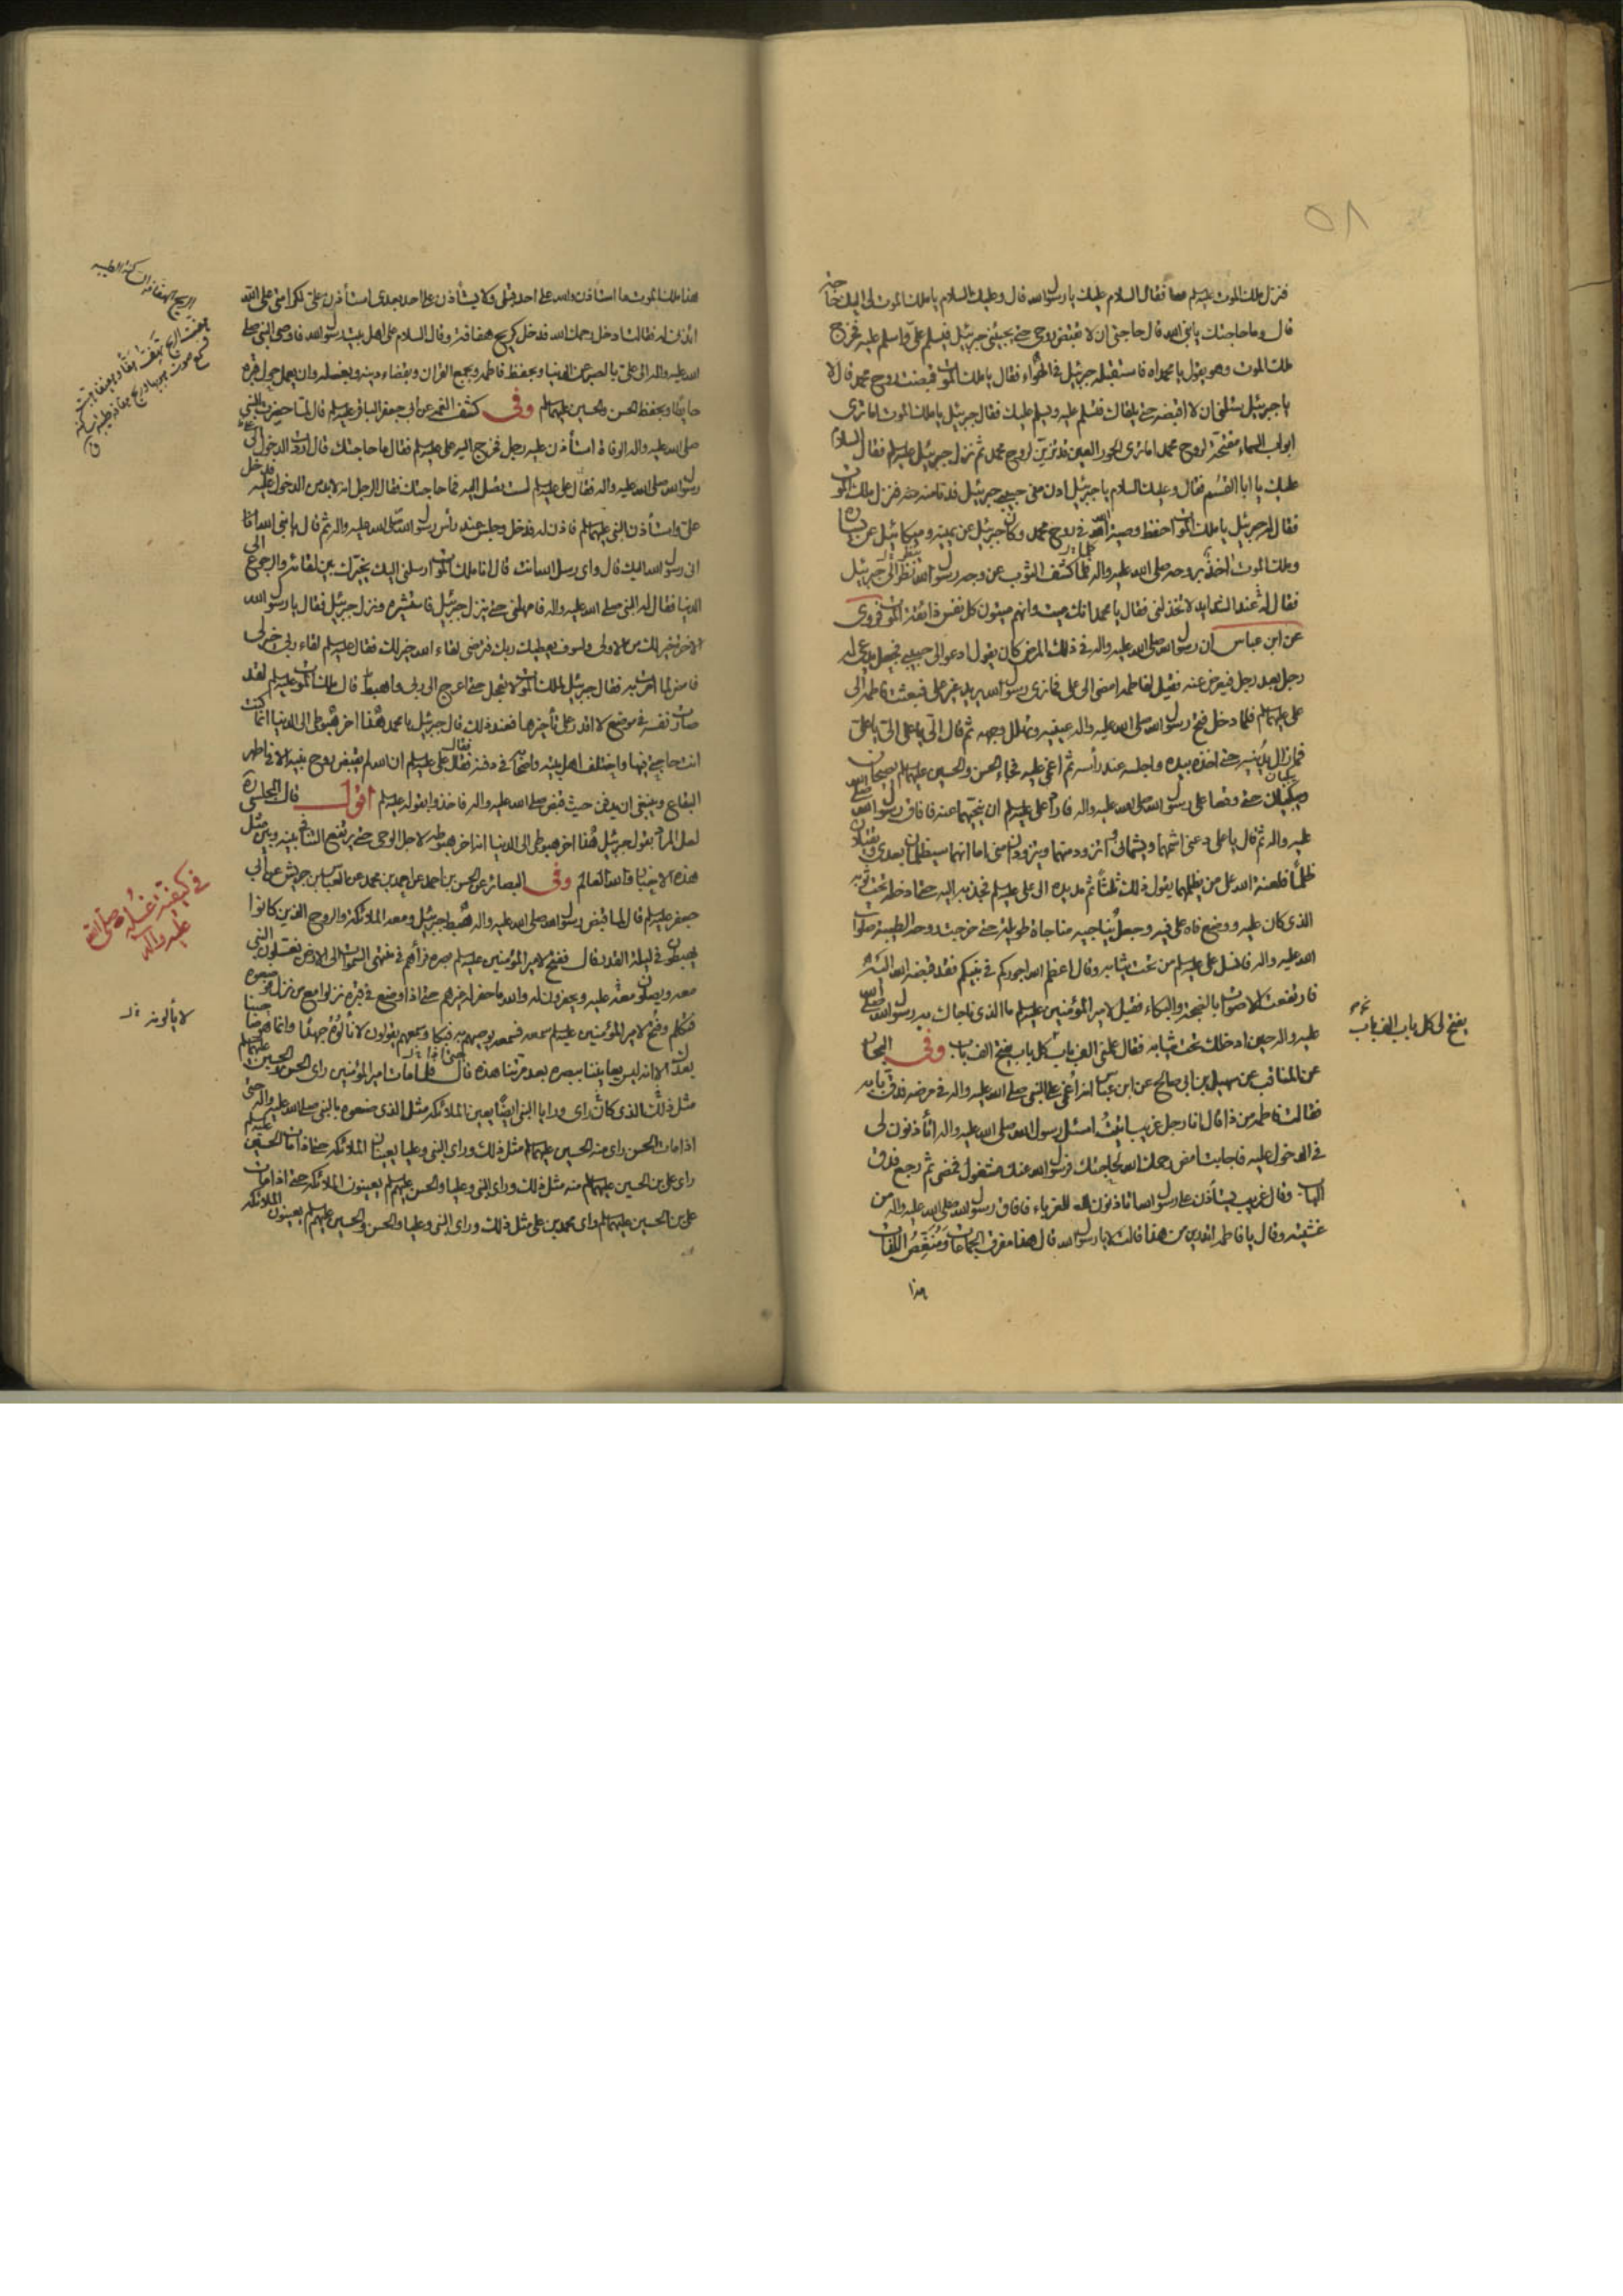 ٥٨
فنزل ملك الموت عليه السلام معا فقال السلام عليك يا رسول الله قال وعليك السلام يا ملك الموت لي اليك حاجة
قال وما حاجتك يا نبي الله قال حاجتي ان لا تقبض روحي حتى يجيئني جبرئيل فيسلم علي واسلم عليه فخرج
ملك الموت وهو يقول يا محمداه فاستقبله جبرئيل في الهواء فقال يا ملك الموت قبضت روح محمد قال لا
يا جبرئيل سئلني ان لا اقبضه حتى يلقاك فتسلم عليه ويسلم عليك فقال جبرئيل يا ملك الموت اما ترى
ابواب السماء مفتحة لروح محمد اما ترى الحور العين قد تزين لروح محمد ثم نزل جبرئيل عليه السلام فقال السلام
عليك يا ابا القسم فقال وعليك السلام يا جبرئيل ادن مني حبيبي جبرئيل فدنا منه فنزل ملك الموت
فقال له جبرئيل يا ملك الموت احفظ وصية الله في روح محمد وكان جبرئيل عن يمينه وميكائيل عن يساره
وملك الموت اخذ بروحه صلى الله عليه واله فلما كشف الثوب عن وجه رسول الله نظر الى جبرئيل
فقال له عند الشدايد لا تخذلني فقال يا محمد انك ميت وانهم ميتون كل نفس ذائقة الموت فروى
عن ابن عباس ان رسول الله صلى الله عليه واله في ذلك المرض كان يقول ادعوا الي حبيبي فجعل يدعى له
رجل بعد رجل فيعرض عنه فقيل لفاطمة امضي الى علي فما نرى رسول الله يريد غير علي فبعثت فاطمة الى
علي عليه السلام فلما دخل فتح رسول الله صلى الله عليه واله عينيه وتهلل وجهه ثم قال الي يا علي الي يا علي
فما زال يدنيه حتى اخذه بيده واجلسه عند رأسه ثم اغمي عليه فجاء الحسن والحسين عليهما السلام يصيحان
ويبكيان حتى وقعا على رسول الله صلى الله عليه واله فاراد علي عليه السلام ان ينحيهما عنه فافاق رسول الله صلى الله
عليه واله ثم قال يا علي دعني اشمهما ويشماني واتزود منهما ويتزودان مني اما انهما سيظلمان بعدي ويقتلان
ظلما فلعنة الله على من يظلمهما يقول ذلك ثلثا ثم مد يده الى علي عليه السلام فجذبه اليه حتى ادخله تحت ثوبه
الذي كان عليه ووضع فاه على فيه وجعل يناجيه مناجاة طويلة حتى خرجت روحه الطيبة صلوات
الله عليه واله فانسل علي عليه السلام من تحت ثيابه وقال اعظم الله اجوركم في نبيكم فقد قبضه الله اليه
فارتفعت الاصوات بالضجة والبكاء فقيل لامير المؤمنين عليه السلام ما الذي ناجاك به رسول الله صلى الله
عليه واله حين ادخلك تحت ثيابه فقال علمني الف باب كل باب يفتح الف باب وفي البحار
يفتح لي كل باب الف باب
عن المناقب عن سهيل بن ابي صالح عن ابن عباس انه أغمي على النبي صلى الله عليه واله في مرضه فدق بابه
فقالت فاطمة من ذا قال انا رجل غريب اتيت اسئل رسول الله صلى الله عليه واله اتأذنون لي
في الدخول عليه فاجابت امض رحمك الله لحاجتك فرسول الله عنك مشغول فمضى ثم رجع فدق
الباب وقال غريب يستأذن على رسول الله اتاذنون للغرباء فافاق رسول الله صلى الله عليه واله من
غشيته وقال يا فاطمة اتدرين من هذا قالت لا يا رسول الله قال هذا مفرق الجماعات ومنغص اللذات
هذا
هذا ملك الموت ما استاذن والله على احد قبلي ولا يستأذن على احد بعدي استأذن علي لكرامتي على الله
ائذني له فقالت ادخل رحمك الله فدخل كريح هفافة وقال السلام على اهل بيت رسول الله فاوصى النبي صلى
الله عليه واله الى علي بالصبر عن الدنيا وبحفظ فاطمة وبجمع القران وبقضاء دينه وبغسله وان يعمل حول قبره
حايطا ويحفظ الحسن والحسين عليهما السلام وفي كشف الغمة عن ابي جعفر الباقر عليه السلام قال لما حضرت النبي
صلى الله عليه واله الوفاة استأذن عليه رجل فخرج اليه علي عليه السلام فقال ما حاجتك قال اردت الدخول الى
رسول الله صلى الله عليه واله فقال علي عليه السلام لست تصل اليه فما حاجتك فقال الرجل انه لا بد من الدخول عليه فدخل
علي واستأذن النبي عليهما السلام فاذن له فدخل وجلس عند رأس رسول الله صلى الله عليه واله ثم قال يا نبي الله انا
اني رسول الله اليك قال واي رسل الله انت قال انا ملك الموت ارسلني اليك يخيرك بين لقائه والرجوع الى
الدنيا فقال له النبي صلى الله عليه واله فامهلني حتى ينزل جبرئيل فاستشيره ونزل جبرئيل فقال يا رسول الله
الاخرة خير لك من الاولى ولسوف يعطيك ربك فترضى لقاء الله خير لك فقال عليه السلام لقاء ربي خير لي
فامض لما امرت به فقال جبرئيل لملك الموت لا تعجل حتى اعرج الى ربي واهبط قال ملك الموت عليه السلام لقد
صارت نفسه في موضع لا اقدر على تأخيرها فعند ذلك قال جبرئيل يا محمد هذا اخر هبوطي الى الدنيا انما كنت
انت حاجتي فيها واختلف اهل بيته واصحابه في دفنه فقال علي عليه السلام ان الله لم يقبض روح نبيه الا في اطهر
البقاع وينبغي ان يدفن حيث قبض صلى الله عليه واله فاخذوا بقوله عليه السلام اقول قال المجلسي ره
لعل المراد بقول جبرئيل هذا اخر هبوطي الى الدنيا اخر هبوطه لاجل الوحي حتى يرتفع التنافي بينه وبين مثل
هذه الاخبار والله العالم وفي البصائر عن الحسن بن احمد عن احمد بن محمد عن العباس بن حريش عن ابي
جعفر عليه السلام قال لما قبض رسول الله صلى الله عليه واله هبط جبرئيل ومعه الملائكة والروح الذين كانوا
يهبطون في ليلة القدر قال ففتح لامير المؤمنين عليه السلام بصره فرآهم في منتهى السموات الى الارض يغسلون النبي
معه ويصلون معه عليه ويحفرون له والله ما حفر له غيرهم حتى اذا وضع في قبره نزلوا مع من نزل فوضعوه
فتكلم وفتح لامير المؤمنين عليه السلام سمعه فسمعه يوصيهم به فبكا وسمعهم يقولون لا نألوه جهدا وانما هو صاحبنا
بعدك الا انه ليس يعايننا ببصره بعد مرتنا هذه قال فلما مات امير المؤمنين راى الحسن والحسين عليهما السلام
مثل ذلك الذي كان راى ورايا النبي ايضا يعين الملائكة مثل الذي صنعوه بالنبي صلى الله عليه واله حتى
اذا مات الحسن راى منه الحسين عليهما السلام مثل ذلك وراى النبي وعليا يعينان الملائكة حتى اذا مات الحسين عليه السلام
راى علي بن الحسين عليهما السلام منه مثل ذلك وراى النبي وعليا والحسن عليهم السلام يعينون الملائكة حتى اذا مات
علي بن الحسين عليهما السلام راى محمد بن علي مثل ذلك وراى النبي وعليا والحسن والحسين عليهم السلام يعينون الملائكة
الريح الهفافة الساكنة الطيبة
في كيفية غسله صلى الله
عليه واله
لا يألونه